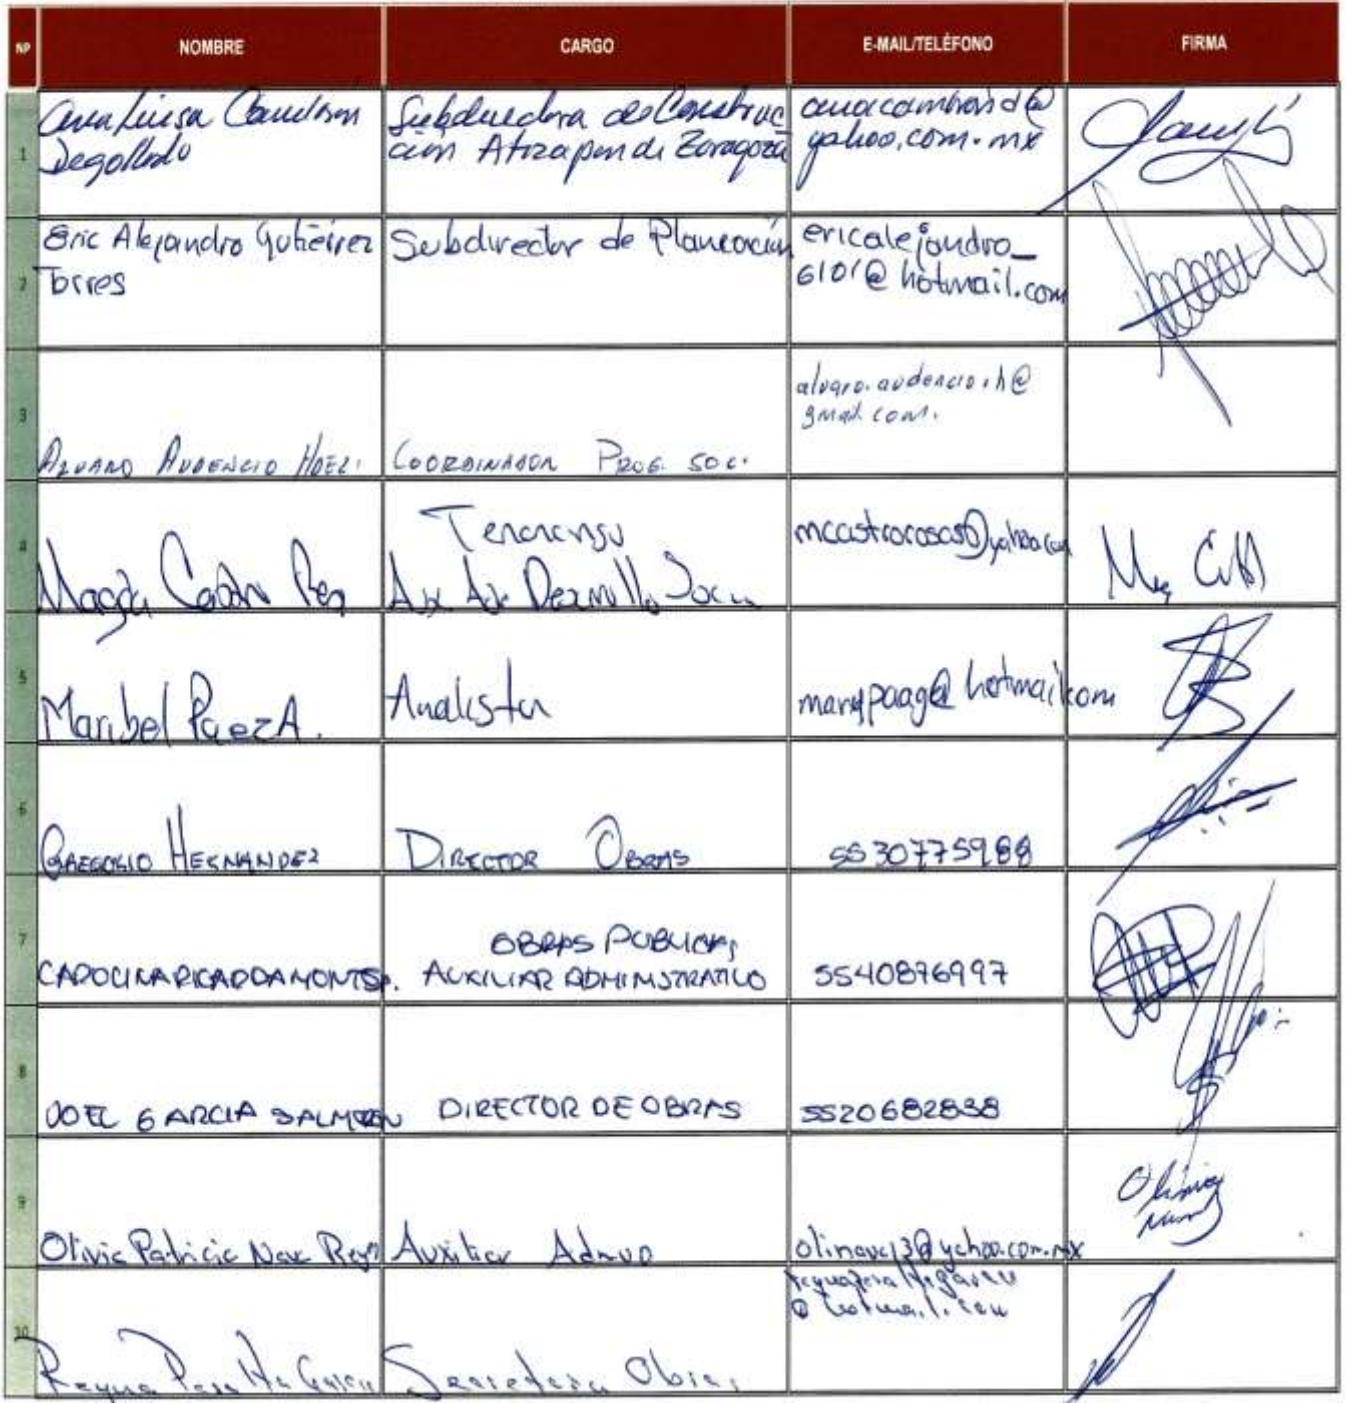 NP NOMBRE CARGO E-MAIL/TELÉFONO FIRMA
1
Ana Luisa Cambrón
Degollado
Subdirectora de Construc
ción Atizapan de Zaragoza
anacambrond@
yahoo.com.mx
2
Eric Alejandro Gutiérrez
Torres
Subdirector de Planeación
ericalejandro_
6101@hotmail.com
3
ALVARO AUDENCIO HDEZ.
COORDINADOR PROG. SOC.
alvaro.audencio.h@
gmail.com.
4
Magda Castro
Tenancingo
Desarrollo Social
mccastrorosas@yahoo.com
5
Maribel Paez A.
Analista
marypaag@hotmail.com
6
GREGORIO HERNANDEZ
DIRECTOR OBRAS
5530775988
7
OBRAS PUBLICAS,
AUXILIAR ADMINISTRATIVO
5540876997
8
JOEL GARCIA SALMERON
DIRECTOR DE OBRAS
5520682838
9
Olivia Patricia Nava Reyes
Auxiliar Admvo
olinava13@yahoo.com.mx
Olivia
Nava
10
Reyna Peralta Garcia
Secretaria Obras
@hotmail.com